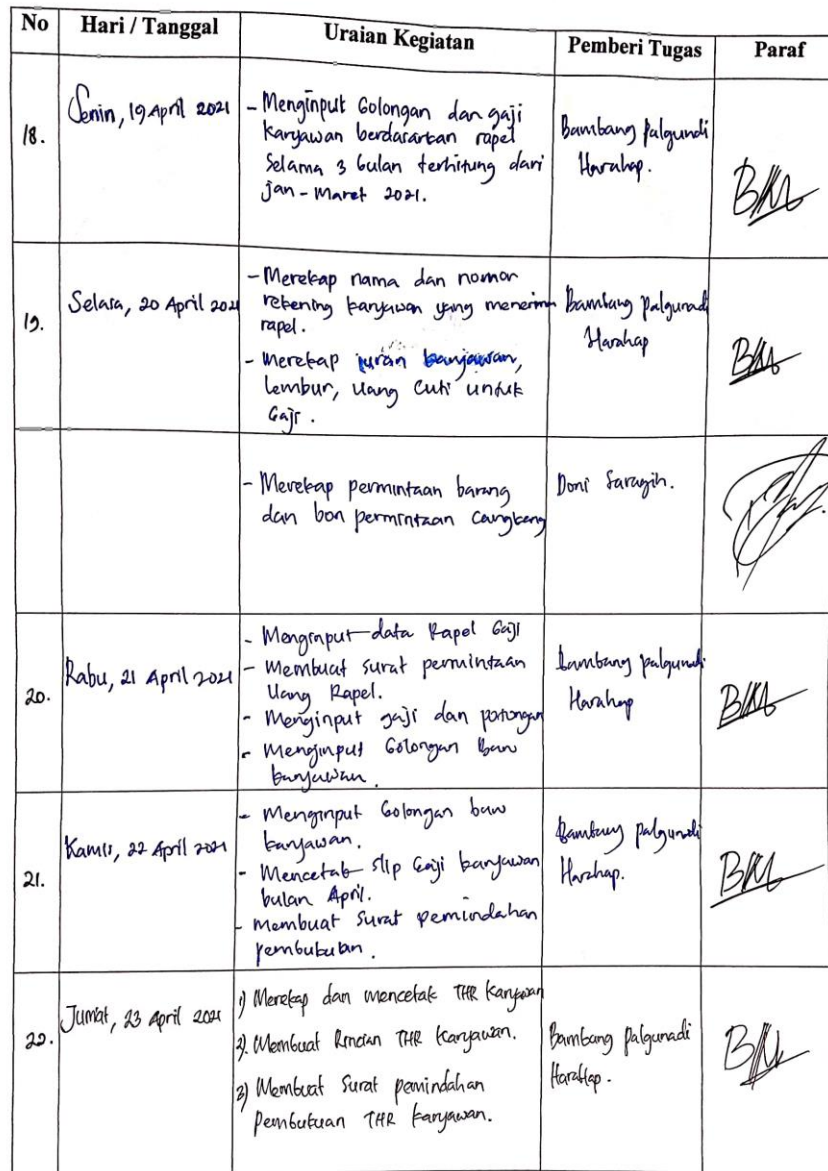 No Hari / Tanggal Uraian Kegiatan Pemberi Tugas Paraf
18.
Senin, 19 April 2021
- Menginput Golongan dan gaji
karyawan berdasarkan rapel
Selama 3 bulan terhitung dari
jan - Maret 2021.
Bambang Palgundi
Harahap.
19.
Selasa, 20 April 2021
- Merekap nama dan nomor
rekening karyawan yang menerima
rapel.
- Merekap iuran karyawan,
lembur, uang cuti untuk
Gaji.
Bambang palgunadi
Harahap
- Merekap permintaan barang
dan bon permintaan cangkang
Doni Saragih.
20.
Rabu, 21 April 2021
- Menginput data Rapel Gaji
- Membuat surat permintaan
Uang Rapel.
- Menginput gaji dan potongan
- Menginput Golongan Baru
karyawan.
Bambang palgunadi
Harahap
21.
Kamis, 22 April 2021
- Menginput Golongan baru
karyawan.
- Mencetak slip Gaji karyawan
bulan April.
- Membuat Surat pemindahan
pembukuan.
Bambang palgunadi
Harahap.
22.
Jumat, 23 April 2021
1) Merekap dan mencetak THR karyawan
2). Membuat Rincian THR karyawan.
3) Membuat Surat pemindahan
Pembukuan THR karyawan.
Bambang Palgunadi
Harahap.